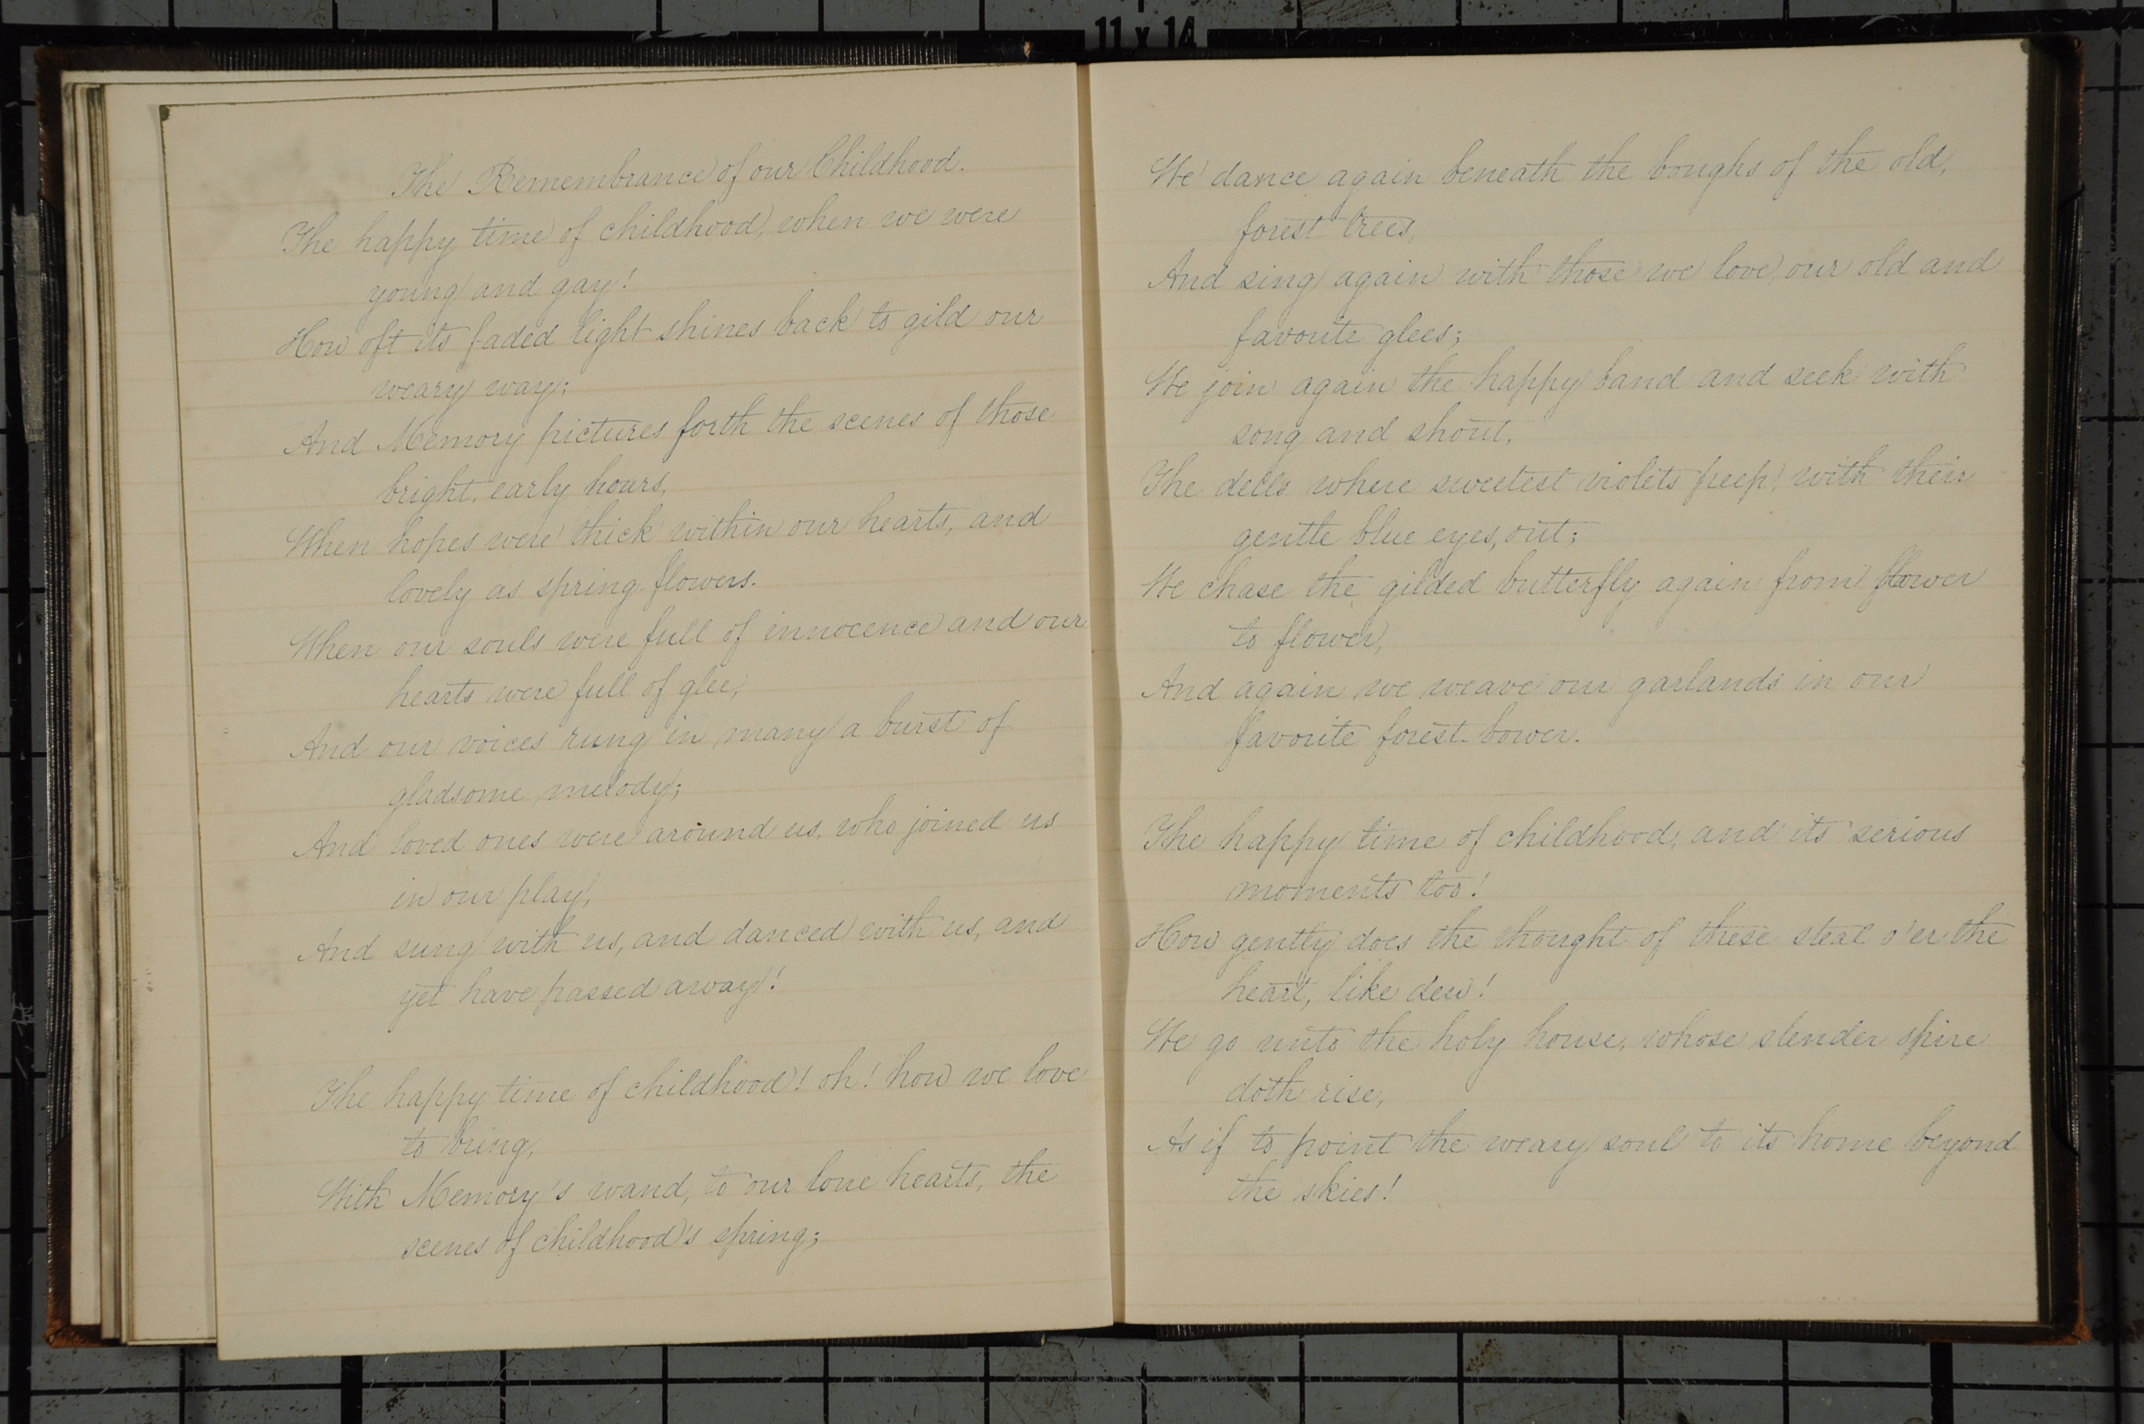 11 x 14
The Remembrance of our Childhood.
The happy time of childhood, when we were
young and gay!
How oft its faded light shines back to gild our
weary way;
And Memory pictures forth the scenes of those
bright, early hours,
When hopes were thick within our hearts, and
lovely as spring-flowers.
When our souls were full of innocence and our
hearts were full of glee,
And our voices rung in many a burst of
gladsome melody;
And loved ones were around us, who joined us
in our play,
And sung with us, and danced with us, and
yet have passed away!
The happy time of childhood! oh! how we love
to bring,
With Memory's wand, to our lone hearts, the
scenes of childhood's spring;
We dance again beneath the boughs of the old,
forest trees,
And sing again with those we love, our old and
favorite glees;
We join again the happy band and seek with
song and shout,
The dells where sweetest violets peep, with their
gentle blue eyes, out;
We chase the gilded butterfly again from flower
to flower,
And again we weave our garlands in our
favorite forest-bower.
The happy time of childhood, and its serious
moments too!
How gently does the thought of these steal o'er the
heart, like dew!
We go unto the holy house, whose slender spire
doth rise,
As if to point the weary soul to its home beyond
the skies!